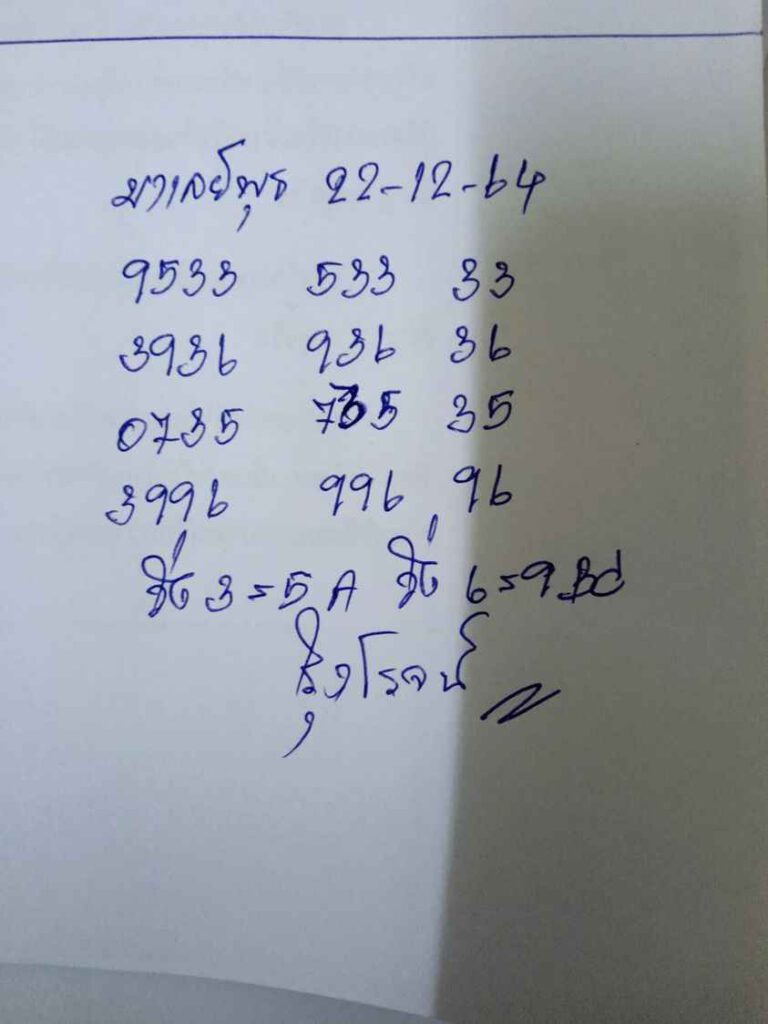 มาเลย์พุธ 22-12-64
9533 533 33
3936 936 36
0735 735 35
3996 996 96
วิ่ง 3=5 A วิ่ง 6=9
รุ่งโรจน์